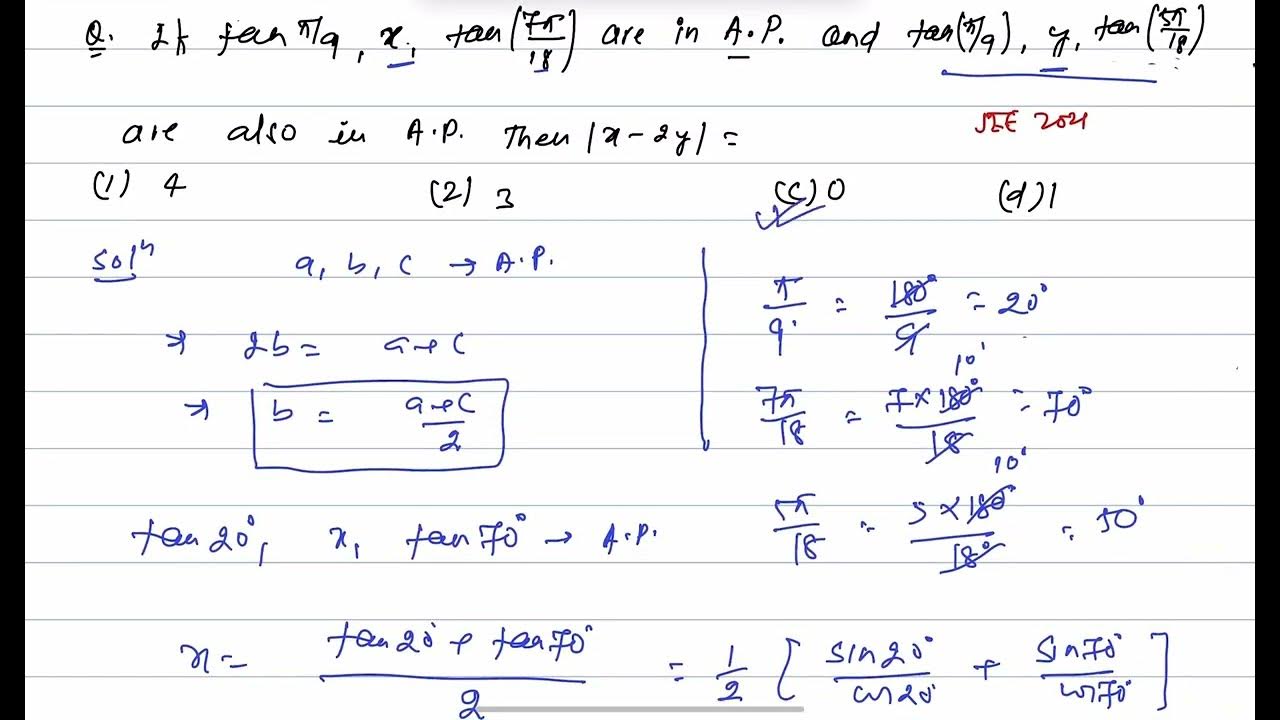 Q. If tan π/9, x, tan(7π/18) are in A.P. and tan(π/9), y, tan(5π/18)
are also in A.P. Then |x - 2y| =
JEE 2021
(1) 4 (2) 3 (c) 0 (d) 1
Solⁿ a, b, c → A.P.
⇒ 2b = a + c
⇒ b = a+c/2
π/9 = 180°/9 = 20°
7π/18 = 7×180°/18 = 70°
10°
5π/18 = 5×180°/18° = 50°
10°
tan 20°, x, tan 70° → A.P.
x = tan20° + tan70°/2 = 1/2 [ sin20°/cos20° + sin70°/cos70° ]